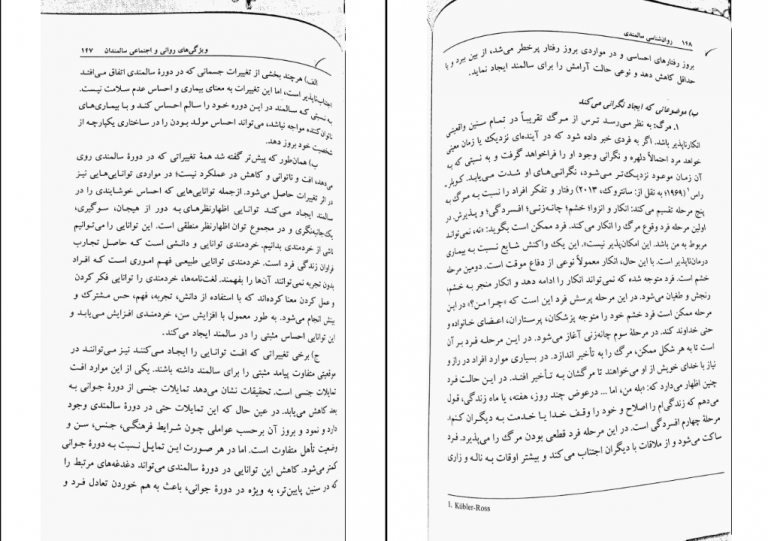 ویژگی‌های روانی و اجتماعی سالمندان ۱۴۷
الف) هرچند بخشی از تغییرات جسمانی که در دورهٔ سالمندی اتفاق می‌افتد
اجتناب‌ناپذیر است، اما این تغییرات به معنای بیماری و احساس عدم سلامت نیست.
به نسبتی که سالمند در این دوره خود را سالم احساس کند و با بیماری‌های
ناتوان‌کننده مواجه نباشد، می‌تواند احساس مولد بودن را در ساختاری یکپارچه از
شخصیت خود بروز دهد.
ب) همان‌طور که پیش‌تر گفته شد همهٔ تغییراتی که در دورهٔ سالمندی روی
می‌دهد، افت و ناتوانی و کاهش در عملکرد نیست؛ در مواردی توانایی‌هایی نیز
در اثر تغییرات حاصل می‌شود. ازجمله توانایی‌هایی که احساس خوشایندی را در
سالمند ایجاد می‌کند توانایی اظهارنظرهای به دور از هیجان، سوگیری،
یک‌جانبه‌نگری و در مجموع توان اظهارنظر منطقی است. این توانایی را می‌توانیم
ناشی از خردمندی بدانیم. خردمندی توانایی و دانشی است که حاصل تجارب
فراوان زندگی فرد است. خردمندی توانایی طبیعی فهم اموری است که افراد
بدون تجربه نمی‌توانند آن‌ها را بفهمند. لغت‌نامه‌ها، خردمندی را توانایی فکر کردن
و عمل کردن معنا کرده‌اند که با استفاده از دانش، تجربه، فهم، حس مشترک و
بینش انجام می‌شود. به طور معمول با افزایش سن، خردمندی افزایش می‌یابد و
این توانایی احساس مثبتی را در سالمند ایجاد می‌کند.
ج) برخی تغییراتی که افت توانایی را ایجاد می‌کنند نیز می‌توانند در
موقعیتی متفاوت پیامد مثبتی را برای سالمند داشته باشند. یکی از این موارد افت
تمایلات جنسی است. تحقیقات نشان می‌دهد تمایلات جنسی از دورهٔ جوانی به
بعد کاهش می‌یابد. در عین حال که این تمایلات حتی در دورهٔ سالمندی وجود
دارد و نمود و بروز آن برحسب عواملی چون شرایط فرهنگی، جنس، سن و
وضعیت تأهل متفاوت است. اما در هر صورت این تمایل نسبت به دورهٔ جوانی
کمتر می‌شود. کاهش این توانایی در دورهٔ سالمندی می‌تواند دغدغه‌های مرتبط را
که در سنین پایین‌تر، به ویژه در دورهٔ جوانی، باعث به هم خوردن تعادل فرد و
۱۴۸ روان‌شناسی سالمندی
بروز رفتارهای احساسی و در مواردی بروز رفتار پرخطر می‌شد، از بین ببرد و یا
حداقل کاهش دهد و نوعی حالت آرامش را برای سالمند ایجاد نماید.
ب) موضوعاتی که ایجاد نگرانی می‌کند
۱. مرگ؛ به نظر می‌رسد ترس از مرگ تقریباً در تمام سنین واقعیتی
انکارناپذیر باشد. اگر به فردی خبر داده شود که در آینده‌ای نزدیک یا زمان معینی
خواهد مرد احتمالاً دلهره و نگرانی وجود او را فراخواهد گرفت و به نسبتی که به
آن زمان موعود نزدیک‌تر می‌شود، نگرانی‌های او شدت می‌یابد. کوبلر-
راس۱ (۱۹۶۹؛ به نقل از: سانتروک، ۲۰۱۳) رفتار و تفکر افراد را نسبت به مرگ به
پنج مرحله تقسیم می‌کند: انکار و انزوا؛ خشم؛ چانه‌زنی؛ افسردگی؛ و پذیرش. در
اولین مرحله فرد وقوع مرگ را انکار می‌کند. فرد ممکن است بگوید: «نه، نمی‌تواند
مربوط به من باشد. این امکان‌پذیر نیست». این یک واکنش شایع نسبت به بیماری
درمان‌ناپذیر است. با این حال، انکار معمولاً نوعی از دفاع موقت است. دومین مرحله
خشم است. فرد متوجه شده که نمی‌تواند انکار را ادامه دهد و انکار منجر به خشم،
رنجش و طغیان می‌شود. در این مرحله پرسش فرد این است که «چرا من؟» در این
مرحله ممکن است فرد خشم خود را متوجه پزشکان، پرستاران، اعضای خانواده و
حتی خداوند کند. در مرحلهٔ سوم چانه‌زنی آغاز می‌شود. در این مرحله فرد بر آن
است تا به هر شکل ممکن، مرگ را به تأخیر اندازد. در بسیاری موارد افراد در راز و
نیاز با خدای خویش از او می‌خواهند تا مرگشان به تأخیر افتد. در این حالت فرد
چنین اظهار می‌دارد که: «بله من، اما ... درعوض چند روز، هفته، یا ماه زندگی، قول
می‌دهم که زندگی‌ام را اصلاح و خود را وقف خدا یا خدمت به دیگران کنم».
مرحلهٔ چهارم افسردگی است. در این مرحله فرد قطعی بودن مرگ را می‌پذیرد. فرد
ساکت می‌شود و از ملاقات با دیگران اجتناب می‌کند و بیشتر اوقات به ناله و زاری
1. Kübler-Ross